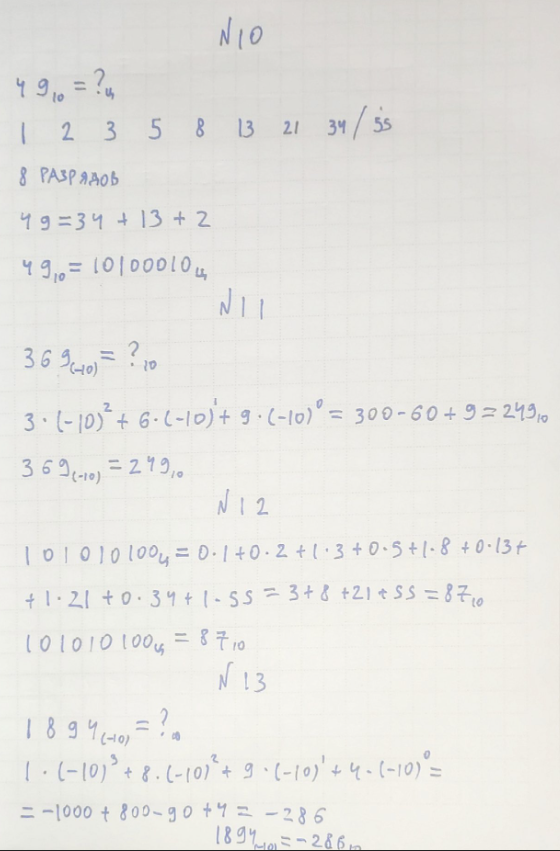 N10
49₁₀ = ?ц
1 2 3 5 8 13 21 34 / 55
8 РАЗРЯДОВ
49 = 34 + 13 + 2
49₁₀ = 10100010ц
N11
369₍₋₁₀₎ = ?₁₀
3 · (-10)² + 6 · (-10)¹ + 9 · (-10)⁰ = 300 - 60 + 9 = 249₁₀
369₍₋₁₀₎ = 249₁₀
N12
101010100ц = 0·1 + 0·2 + 1·3 + 0·5 + 1·8 + 0·13 +
+ 1·21 + 0·34 + 1·55 = 3 + 8 + 21 + 55 = 87₁₀
101010100ц = 87₁₀
N13
1894₍₋₁₀₎ = ?₁₀
1 · (-10)³ + 8 · (-10)² + 9 · (-10)¹ + 4 · (-10)⁰ =
= -1000 + 800 - 90 + 4 = -286
1894₍₋₁₀₎ = -286₁₀